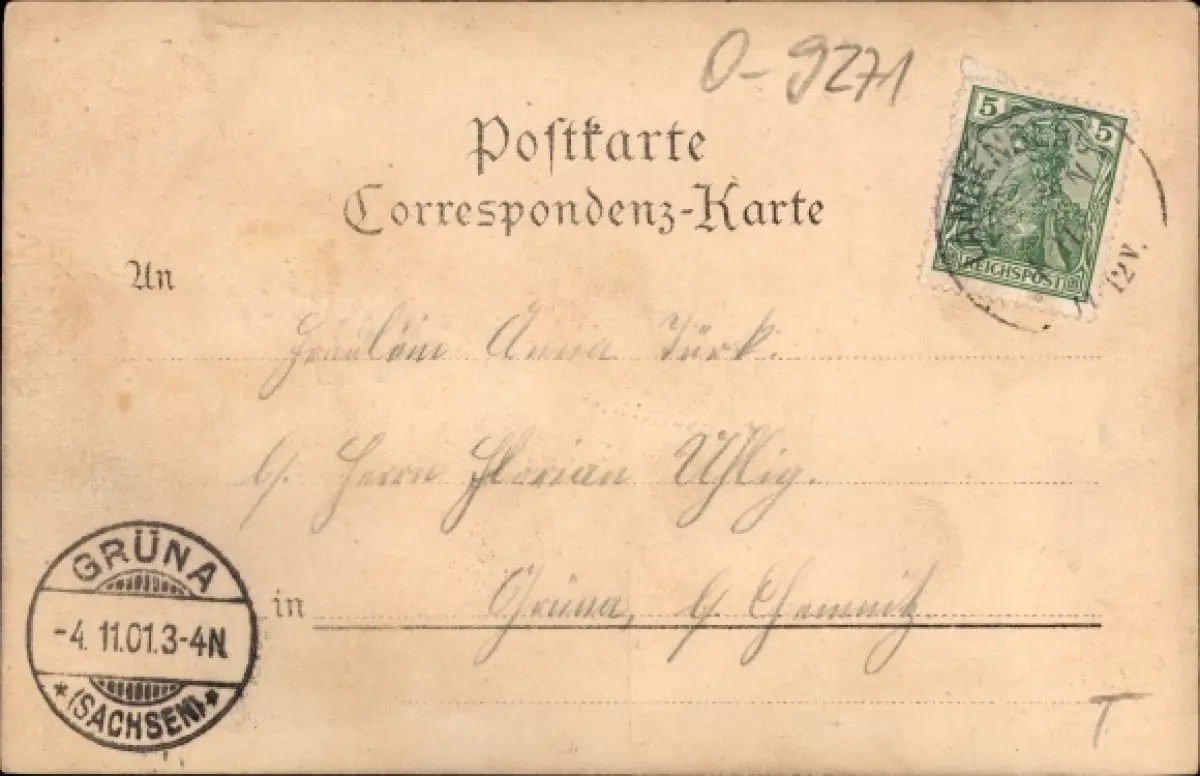 O-9271
Postkarte
Correspondenz-Karte
5 5
REICHSPOST
12V.
An
Fräulein Anna Türk.
b/. Herrn Florian Uhlig.
in Grüna, b/. Chemnitz.
GRÜNA
-4.11.01.3-4N
*(SACHSEN)*
T.